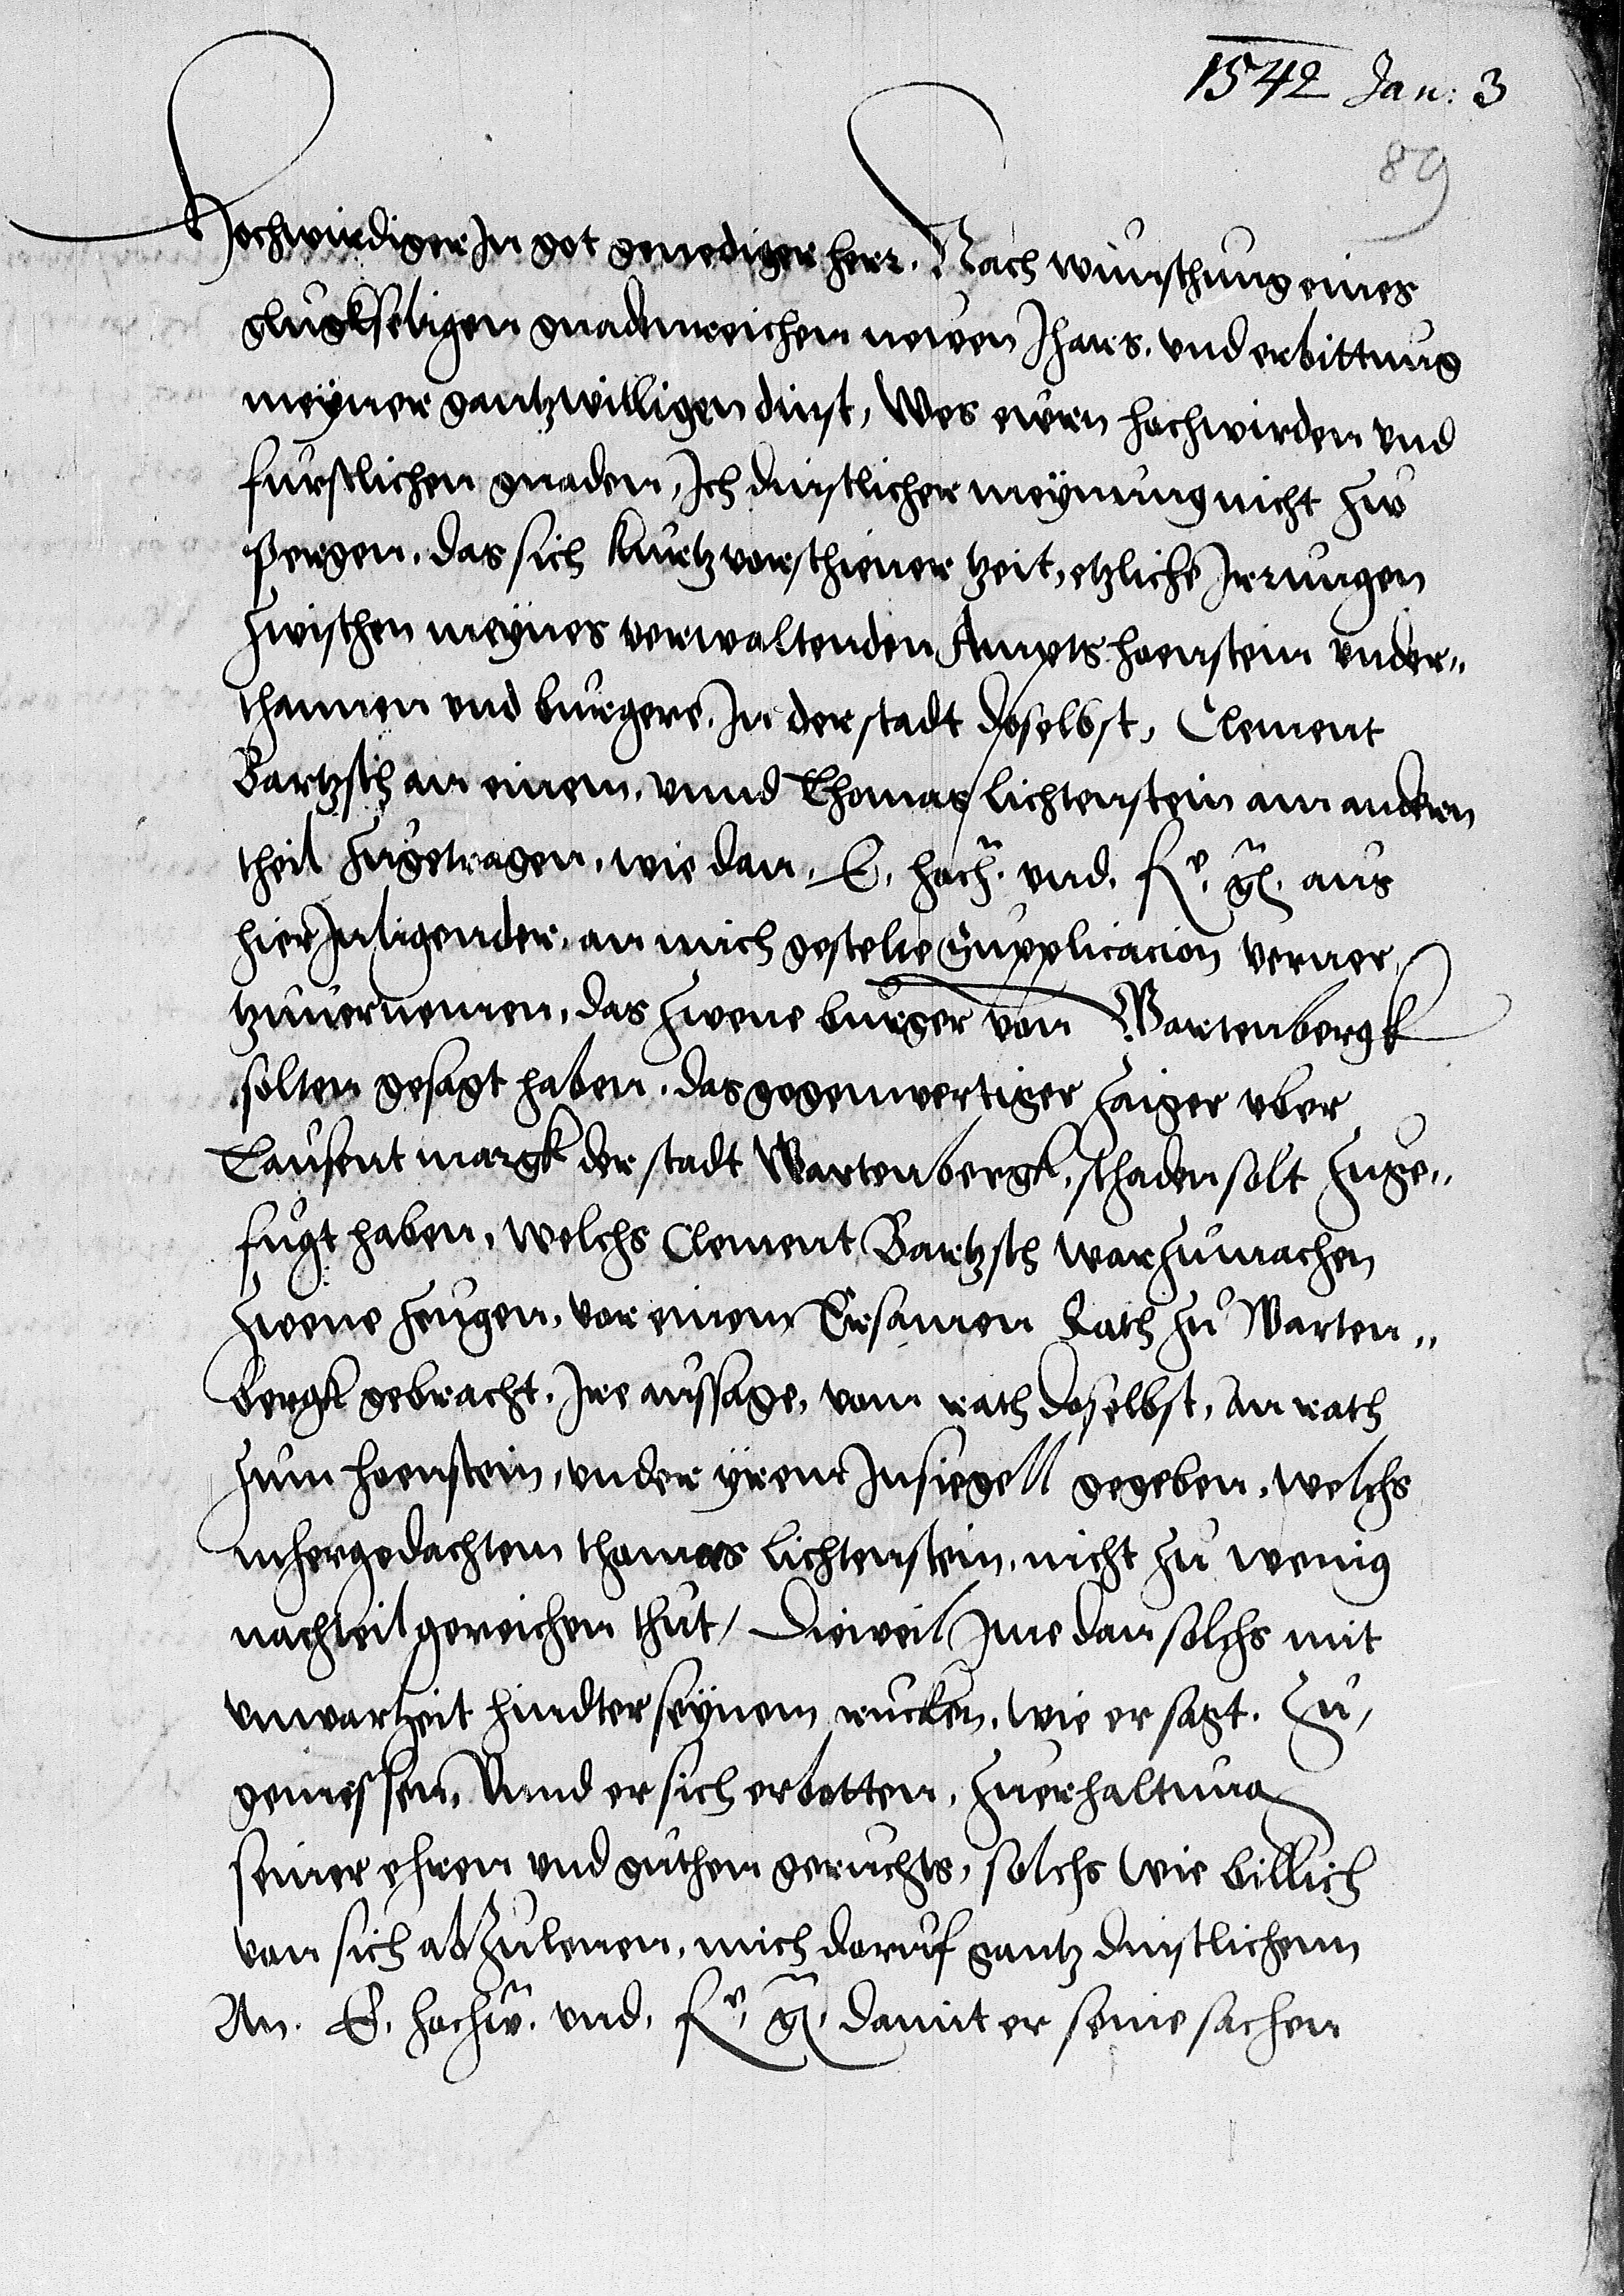 1542 Jan: 3
89
Hochwirdiger In got genediger herr. Nach wunschung eines
glugkseligen gnadenreichen newen Jhars. vnd erbittung
meyner gantzwilligen dinst, Wes ewrn hochwirden vnd
furstlichen gnaden, Ich dinstlicher meynung nicht zw
pergen. das sich kurtzvorschiener tzeit, etzliche Irrungen
zwischen meynes verwaltenden Ampts hoenstein vnder„
thannen vnd burgere. In der stadt doselbst, Clement
Bartzsch an einem, vnnd Thomas lichtenstein am andern
theil zugetragen, wie dan, E. hoch. vnd. F. g. aus
hier Inligender, an mich gestelte Supplicacion verner
tzuuernemen, das zwene burger von Wartenbergk
solten gesagt haben. das gegenwertiger zaiger vber
Tausent margk der stadt Wartenbergk, schaden solt zuge„
fugt haben, welchs Clement Bartzsch warzumachen
zwene zeugen, vor einem Ersamen Rath zu Warten„
bergk gebracht. Ire aussage, vom rath doselbst, an rath
zum hoenstein, vnder yrem Insiegell gegeben, welchs
mehergedachtem thomas lichtenstein, nicht zu wenig
nachteil gereichen thut, Dieweil Ime dan solchs mit
vnwarheit hindter seynem rucken, wie er sagt. Zu,
gemessen, Vnnd er sich erbotten, zuerhaltung
seiner ehren vnd guthen geruchts, solchs wie billich
von sich abzulenen, mich doruf gantz dinstlichenn
An. E. hochw. vnd. F. g. damit er seine sachen